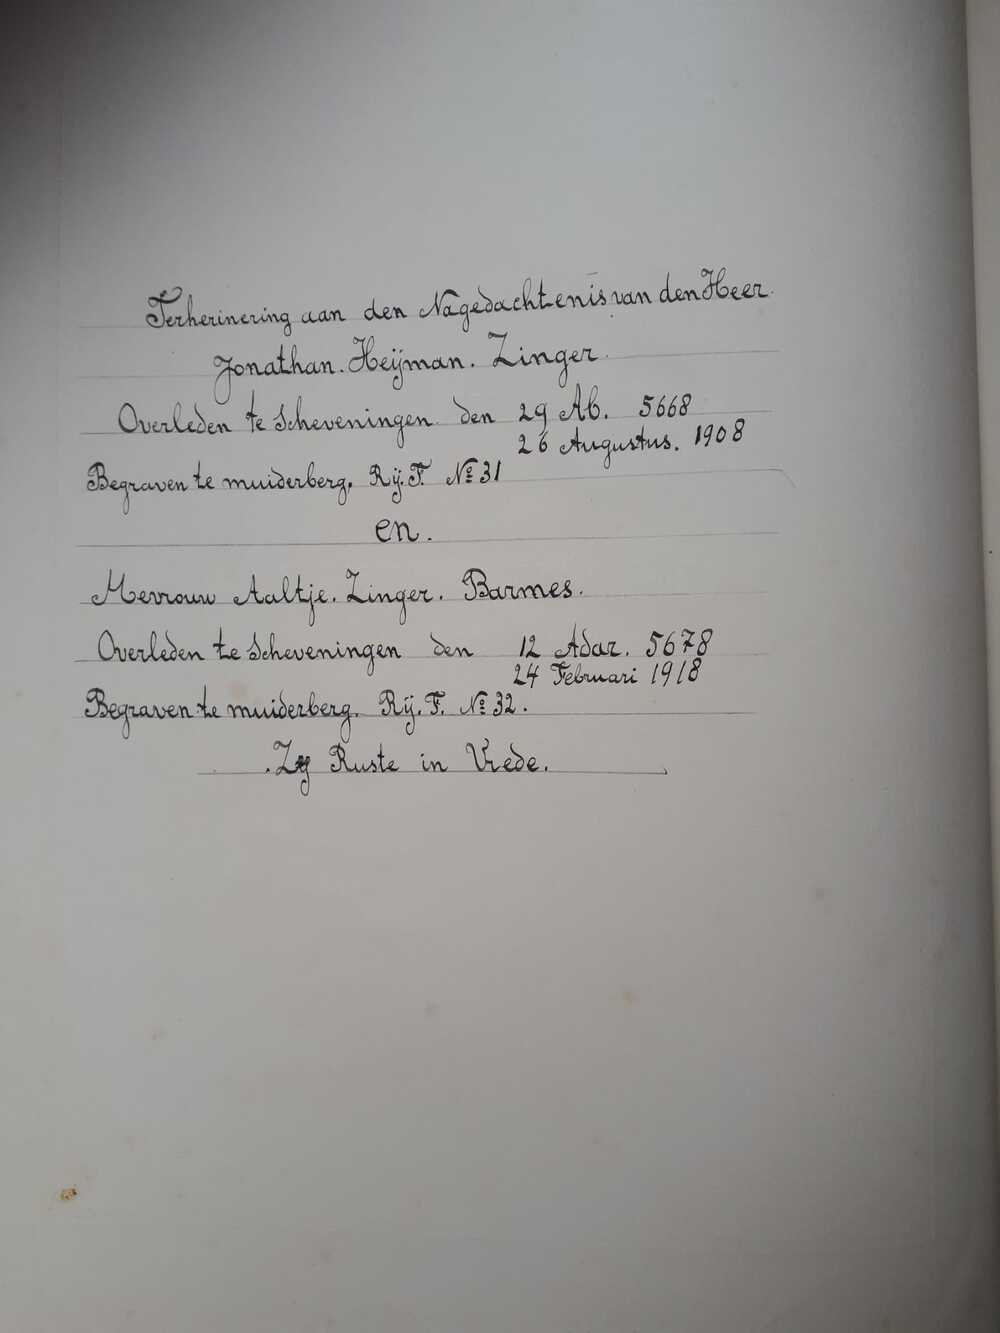 Terherinering aan den Nagedachtenis van den Heer.
Jonathan. Heijman. Zinger.
Overleden te Scheveningen den 29 Ab. 5668
26 Augustus. 1908
Begraven te muiderberg. Rij. F. No 31
en.
Mevrouw Aaltje. Zinger. Barmes.
Overleden te Scheveningen den 12 Adar. 5678
24 Februari 1918
Begraven te muiderberg. Rij. F. No 32.
Zy Ruste in Vrede.